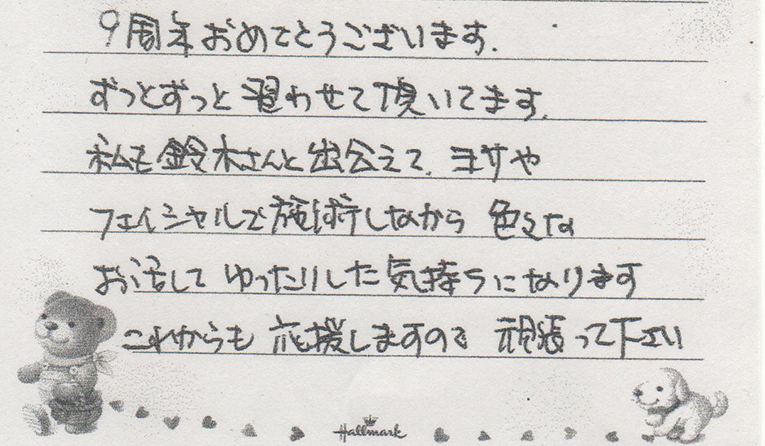 9周年おめでとうございます.
ずっとずっと習わせて頂いてます.
私も鈴木さんと出会えて、ヨサや
フェイシャルで施術しながら 色々な
お話して ゆったりした気持ちになります
これからも 応援しますので 頑張って下さい
Hallmark